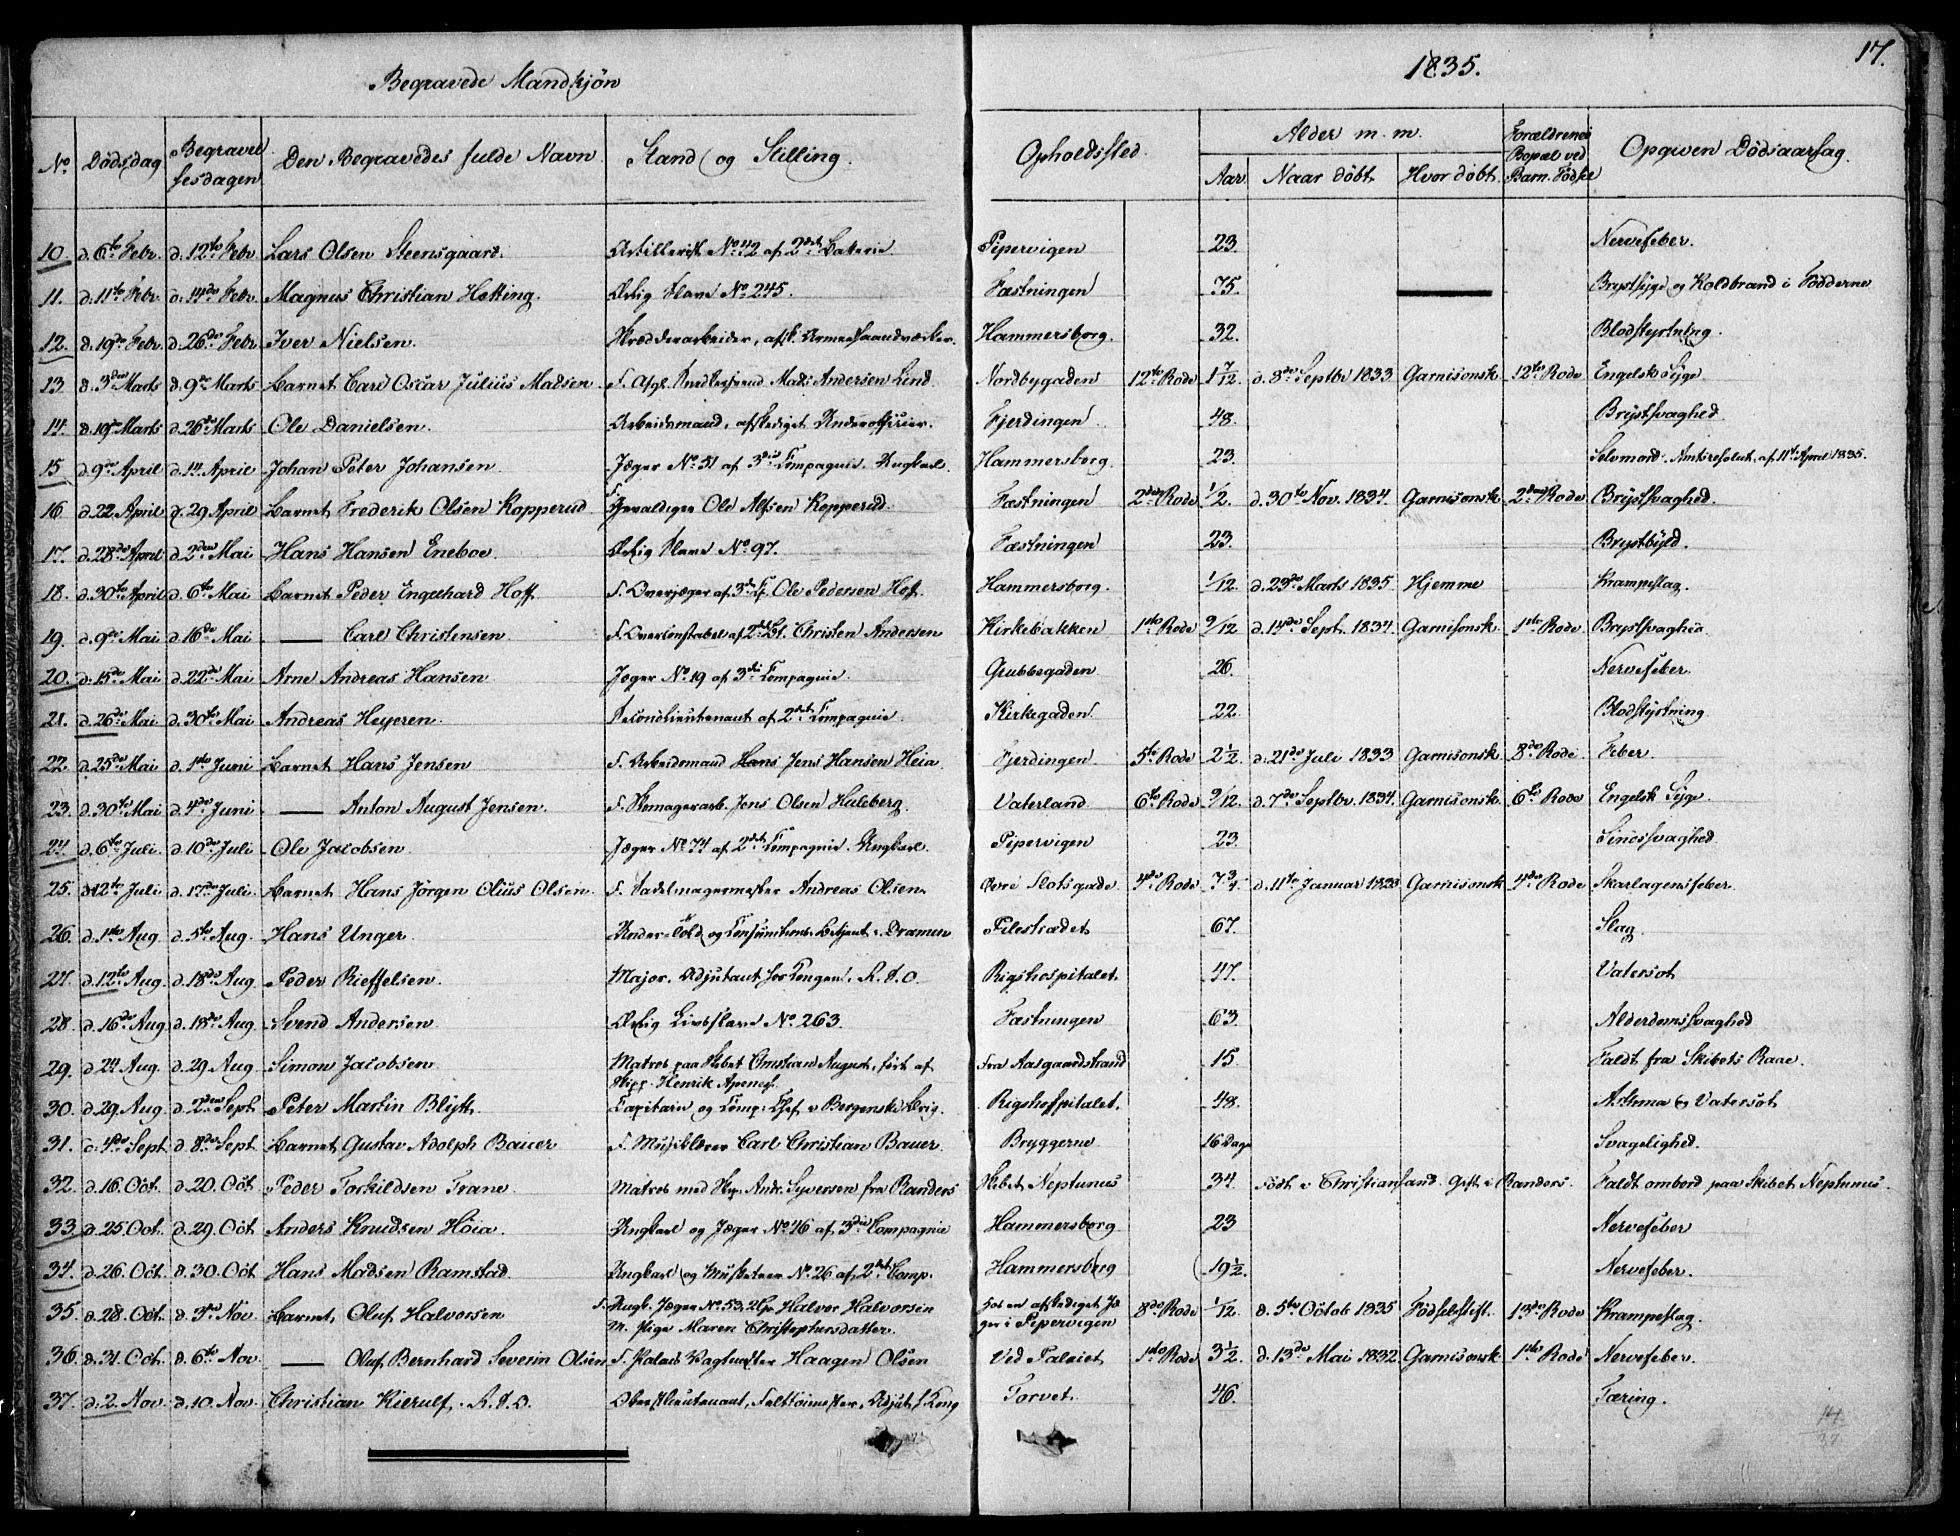 Begravede Mandkjøn
1835.
17.
No Dødsdag Begravelsesdagen Den Begravedes fulde Navn Stand og Stilling. Opholdssted Alder m. m. Aar Naar døbt Hvor døbt Forældrenes Bopæl ved Barn. Fødsel Opgiven Dødsaarsag.
10. d. 6te Febr. d. 12te Febr Lars Olsen Steensgaard. Artillerist No 42 af 2det Batterie Pipervigen 23. Nervefeber.
11. d. 11te Febr. d. 14de Febr. Magnus Christian Hetting. Ærlig Slave No 245. Fæstningen 75. Brystsyge og Koldbrand i Fødderne
12. d. 19de Febr. d. 26de Febr Iver Nielsen. Skrædderarbeider, afsk. Armeehaandværker. Hammersborg. 32. Blodstyrtning.
13 d. 3die Marts d. 9de Marts Barnet Carl Oscar Julius Madsen. F. Afgl. Snedkersvend Mads Andersen Lind. Nordbygaden 12te Rode 1 7/12 d. 8de Septbr 1833 Garnisonsk. 12te Rode Engelsk Syge.
14. d. 19de Marts d. 26de Marts Ole Danielsen. Arbeidsmand, afskediget Underofficier. Fjerdingen 48. Brystsvaghed.
15 d. 9de April d. 14 April Johan Peter Johansen Jæger No 51 af 3die Compagnie. Ungkarl. Hammersborg. 23. Selvmord. Amtsresolut. af 11te April 1835.
16 d. 22 April d. 29 April Barnet Frederik Olsen Kopperud F. Gevaldiger Ole Alfsen Kopperud. Fæstningen 2den Rode 1/2. d. 30te Nov. 1834. Garnisonsk 2den Rode Brystsvaghed.
17. d. 28de April d. 2den Mai Hans Hansen Eneboe. Ærlig Slave No 97. Fæstningen 23. Brystbyld.
18. d. 30te April d. 6te Mai Barnet Peder Engelhard Hoff. F. Overjæger af 3die C. Ole Pedersen Hoff. Hammersborg. 1/12. d. 29de Marts 1835 Hjemme Krampeslag.
19. d. 9de Mai d. 16de Mai — Carl Christensen F. Overconstabel af 2det Bt. Christen Andersen Kirkebakken 1ste Rode 9/12 d. 14de Sept. 1834 Garnisonsk. 1ste Rode. Brystsvaghed.
20. d. 15de Mai d. 22de Mai Arne Andreas Hansen Jæger No 19 af 3die Compagnie. Grubbegaden 26. Nervefeber.
21. d. 26de Mai d. 30te Mai Andreas Heyeren. Secondlieutenant af 2det Compagnie. Kirkegaden. 22. Blodstyrtning
22. d. 25de Mai d. 1ste Juni Barnet Hans Jensen F. Arbeidsmand Hans Jens Hansen Heia. Fjerdingen 5te Rode 2 1/2. d. 21de Juli 1833 Garnisonsk. 8de Rode Feber.
23. d. 30te Mai d. 4de Juni — Anton August Jensen. F. Skomagerarb. Jens Olsen Huleberg. Vaterland 6te Rode 9/12. d. 7de Septbr. 1834. Garnisonsk. 6te Rode Engelsk Syge.
24. d. 6te Juli. d. 10de Juli Ole Jacobsen. Jæger No 74 af 2det Compagnie. Ungkarl. Pipervigen 23. Sindssvaghed
25. d. 12te Juli d. 17de Juli. Barnet Hans Jørgen Olius Olsen. F. Sadelmagermester Andreas Olsen. Øvre Slotsgade 4de Rode 7 3/4. d. 11te Januar 1828 Garnisonsk 4de Rode Skarlagensfeber.
26. d. 1ste Aug d. 5te Aug. Hans Unger. Under-Told og Consumtions-Betjent i Dramen Filestrædet 67. Slag.
27. d. 12te Aug. d. 18de Aug Peder Rieffelsen. Major. Adjutant hos Kongen. R. S. O. Rigshospitalet 47. Vatersot
28. d. 16de Aug. d. 18de Aug. Svend Andersen. Ærlig Livsslave No 263. Fæstningen 63. Alderdomssvaghed
29. d. 24 Aug. d. 29 Aug. Simon Jacobsen. Matros paa Skibet Christian August, ført af
Skipp. Henrik Apenes. Fra Aasgaardstrand 15. Faldt fra Skibets Raae.
30. d. 29 Aug. d. 2den Sept. Peter Martin Blytt. Capitain og Comp: Chef i Bergenske Brig. Rigshospitalet. 48. Asthma og Vatersot
31. d. 4de Sept d. 8de Sept. Barnet Gustav Adolph Bauer F. Musiklærer Carl Christian Bauer. Bryggerne 16 Dage Svagelighed.
32. d. 16. Oct. d. 20. Oct. Peder Torkildsen Trane. Matros med Skip. Andr. Syversen fra Randers Skibet Neptunus 34. Født i Christiansand. Gift i Randers. Faldt ombord paa Skibet Neptunus.
33. d. 25. Oct. d. 29. Oct Anders Knudsen Höia. Ungkarl og Jæger No 46 af 3die Compagnie Hammersborg 23 Nervefeber
34. d. 26. Oct. d. 30. Oct Hans Madsen Ramstad. Ungkarl og Musketeer No 26 af 2det Comp. Hammersberg 19 1/2. Nervefeber.
35. d. 28. Oct. d. 3die Nov. Barnet, Oluf Halvorsen F. Ungk. Jæger No 53, 2 C. Halvor Halvorsen
M. Pige Maren Christophersdatter. Hos en afskediget Jæ
ger i Pipervigen 8de Rode 1/12 d. 5te Octob. 1835 Fødselsstift. 13de Rode Krampeslag.
36. d. 31. Oct. d. 6te Nov. — Oluf Bernhard Severin Olsen F. Palais Vagtmester Haagen Olsen Ved Palaiet 1ste Rode 3 1/2. d. 13de Mai 1832. Garnisonsk 1ste Rode Nervefeber.
37. d. 2. Nov. d. 10. Nov. Christian Kierulf. R. S. O. Oberstlieutenant, Felttøimester, Adjut. f. Kong Torvet. 46. Tæring.
14
37